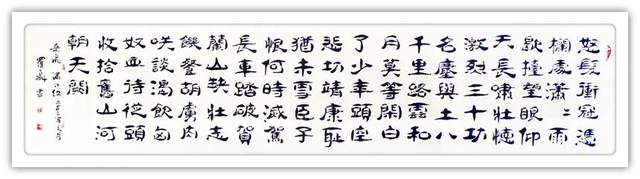 怒髮衝冠憑
欄處瀟〻雨
歇擡望眼仰
天長嘯壯懷
激烈三十功
名塵與土八
千里路雲和
月莫等閑白
了少年頭空
悲切靖康恥
猶未雪臣子
恨何時滅駕
長車踏破賀
蘭山缺壯志
饑餐胡虜肉
咲談渴飲匈
奴血待從頭
收拾舊山河
朝天闕
岳飛滿江紅
書